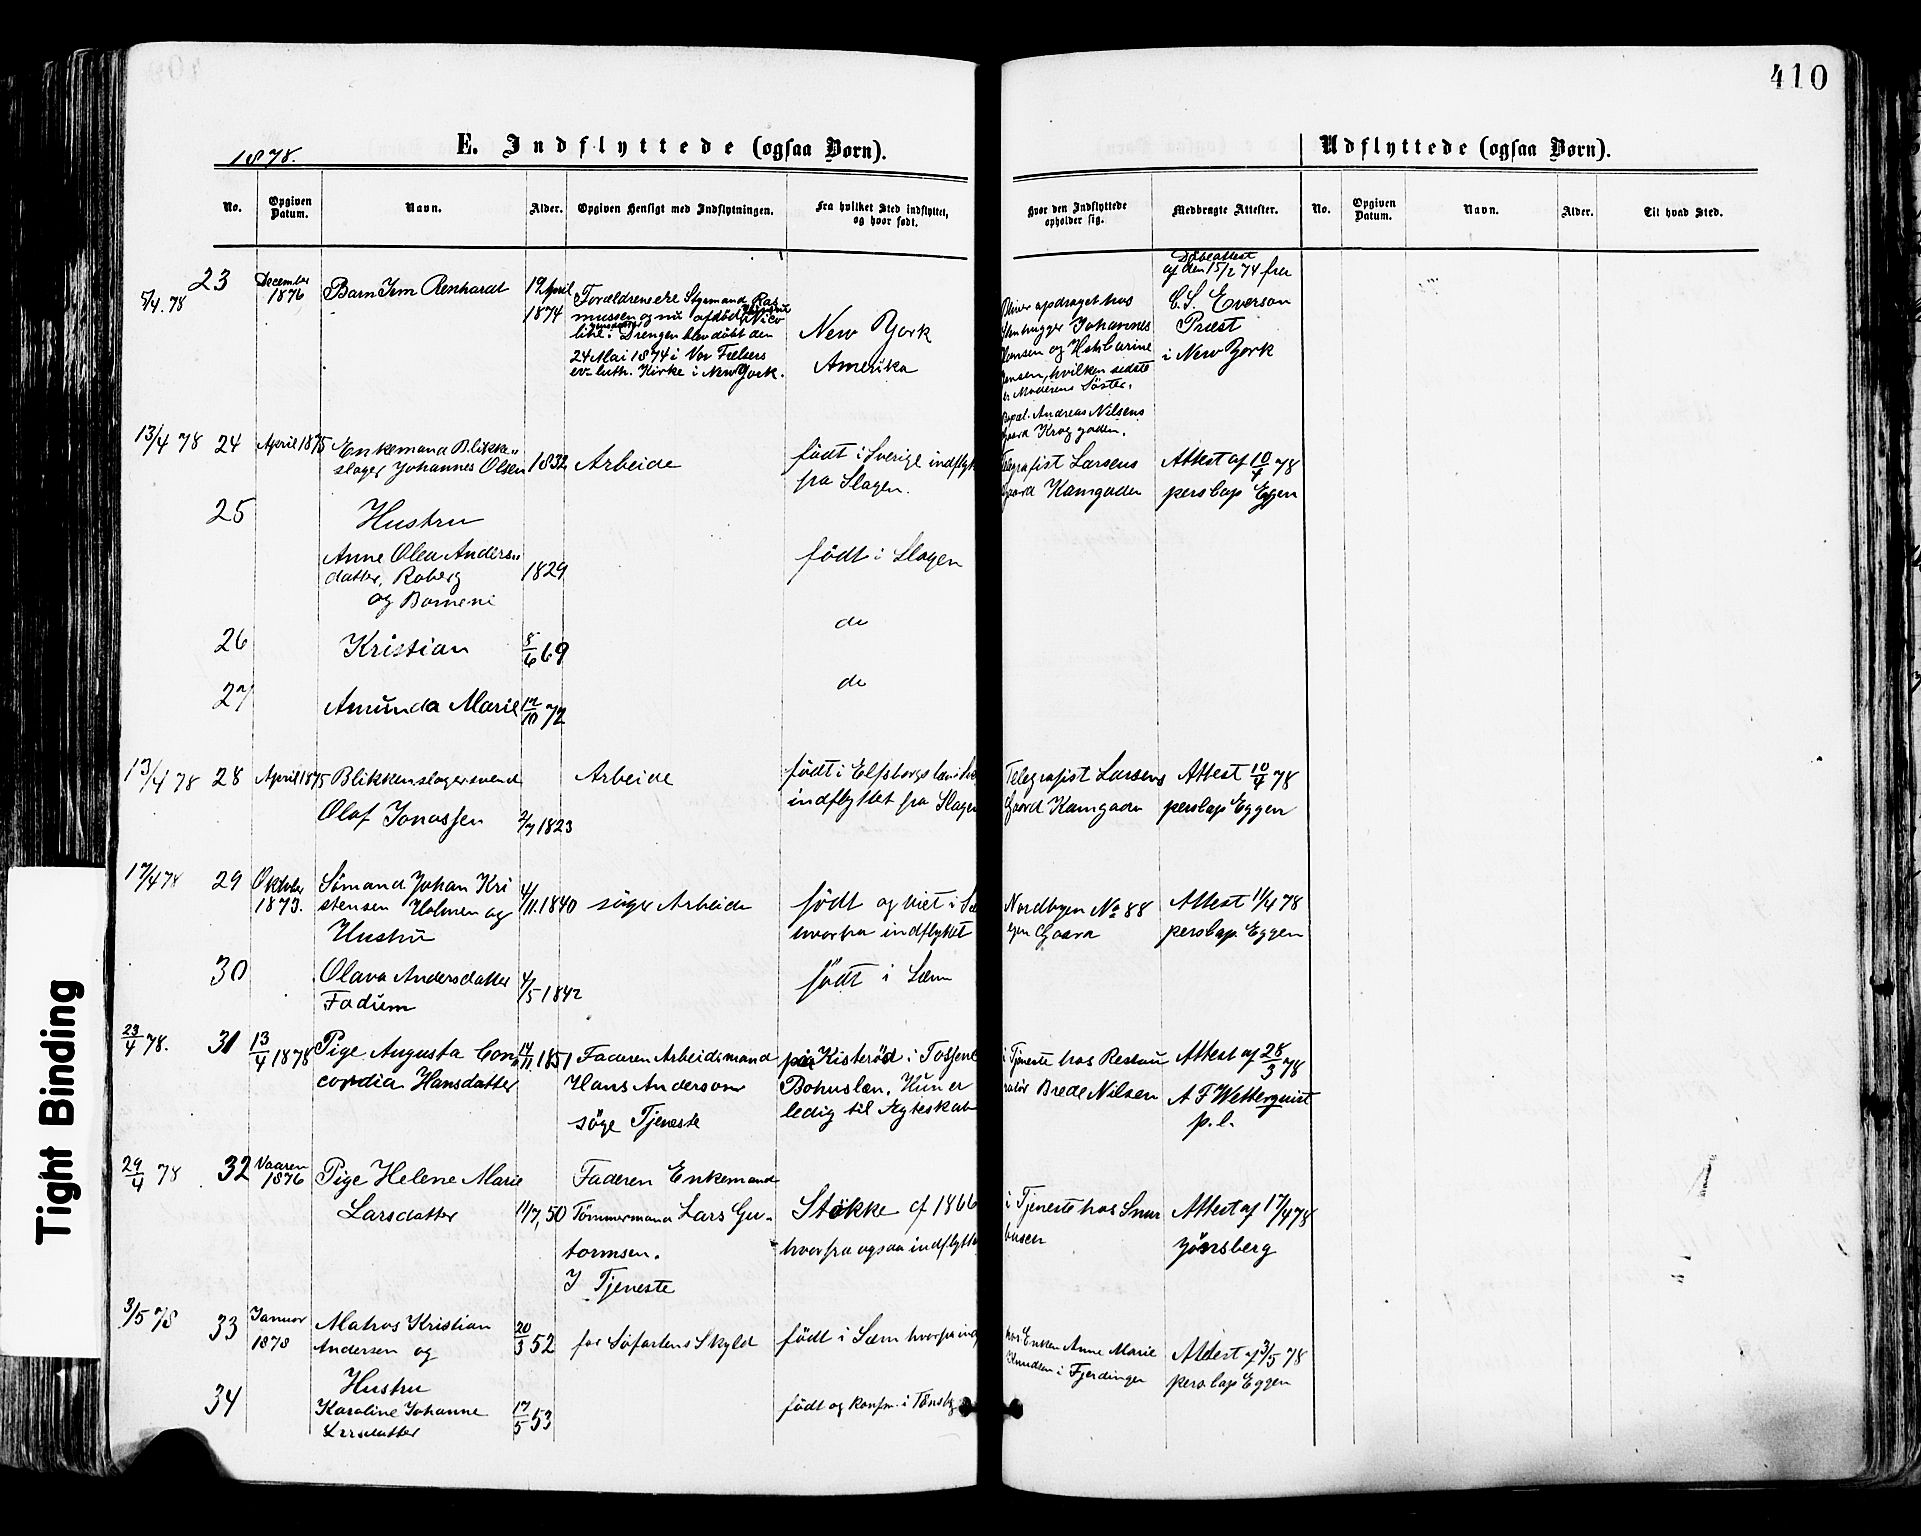 410
1878.
E. Indflyttede (ogsaa Børn).
Udflyttede (ogsaa Børn).
No.
Opgiven Datum.
Navn.
Alder.
Opgiven Hensigt med Indflytningen.
Fra hvilket Sted indflyttet, og hvor født.
Hvor den Indflyttede opholder sig.
Medbragte Attester.
No.
Opgiven Datum.
Navn.
Alder.
Til hvad Sted.
5/4.78
23
December
1876
Barn Jem Renhardt
19 April
1874
Forældrene ere Styrmand Ras
mussen og nu afdød Hustru Nico
line. Drengen blev døbt den
24 Mai 1874 i Vor Frelsers
ev-luth. Kirke i New York.
New York
Amerika
Bliver opdraget hos
Stenhugger Johannes
Hansen og
Jensen, hvilken sidste
er Moderens Søster.
Andreas Nilsens
Gaard
Døbeattest
af den 15/2 74 fra
C. S. Everson
Præst
i New York
13/4 78
24
April 1875
Enkemand Blikken
slager Johannes Olsen
1832
Arbeide
født i Sverige indflyt
fra Slagen.
Telegrafist Larsens
Gaard Kamgaden
Attest af 10/4 78
pers cap Eggen
25
Hustru
Anne Olea Anders
datter, Roberg
og Børnene
1829
født i Slagen
26
Kristian
8/6 69
do
27
Amunda Marie
12/10 72
do
13/4 78
28
April 1875
Blikkenslagersvend
Olaf Jonassen
2/7 1823
Arbeide
født i Elfsborgs læn i Sve
indflyttet fra Slagen
Telegrafist Larsens
Gaard Kamgaden
Attest 10/4 78
pers cap Eggen
17/4 78
29
Oktober
1873.
Sømand Johan Kri
stensen Holmen og
Hustru
4/11.1840
søge Arbeide
født og viet i Sæ
hvorfra indflyttet
Nordbyen No 88
egen Gaard
Attest 11/4 78
pers cap. Eggen
30
Olava Andersdatter
Fadum
4/5 1842
født i Sæm
23/4 78.
31
13/4 1878
Pige Augusta Con
cordia Hansdatter
14/11.1851
Faderen Arbeidsmand
Hans Anderson
søge Tjeneste
paa Kisterød i Tossene
Bohuslæn. Hun er
ledig til Ægteskab
i Tjeneste hos Restau
ratør Brede Nilsen
Attest af 28/3 78
A F Wetterquist
p. l.
29/4 78
32
Vaaren
1876
Pige Helene Marie
Larsdatter
11/7, 50
Faderen Enkemand
Tømmermand Lars Gu-
tormsen.
I Tjeneste
Stokke cf 1866
hvorfra ogsaa indflytte
i Tjeneste hos
Attest af 17/4 78
Jønsberg
3/5 78
33
Januar
1878
Matros Kristian
Andersen og
20/3 52
for Søfartens Skyld
født i Sæm hvorfra ind
hos Enken Anne Marie
Knudsen i Fjerdingen
Attest af 3/5 78
pers. cap Eggen
34
Hustru
Karoline Johanne
Larsdatter
17/5 53
født og konfm. i Tønsbg
Tight Binding